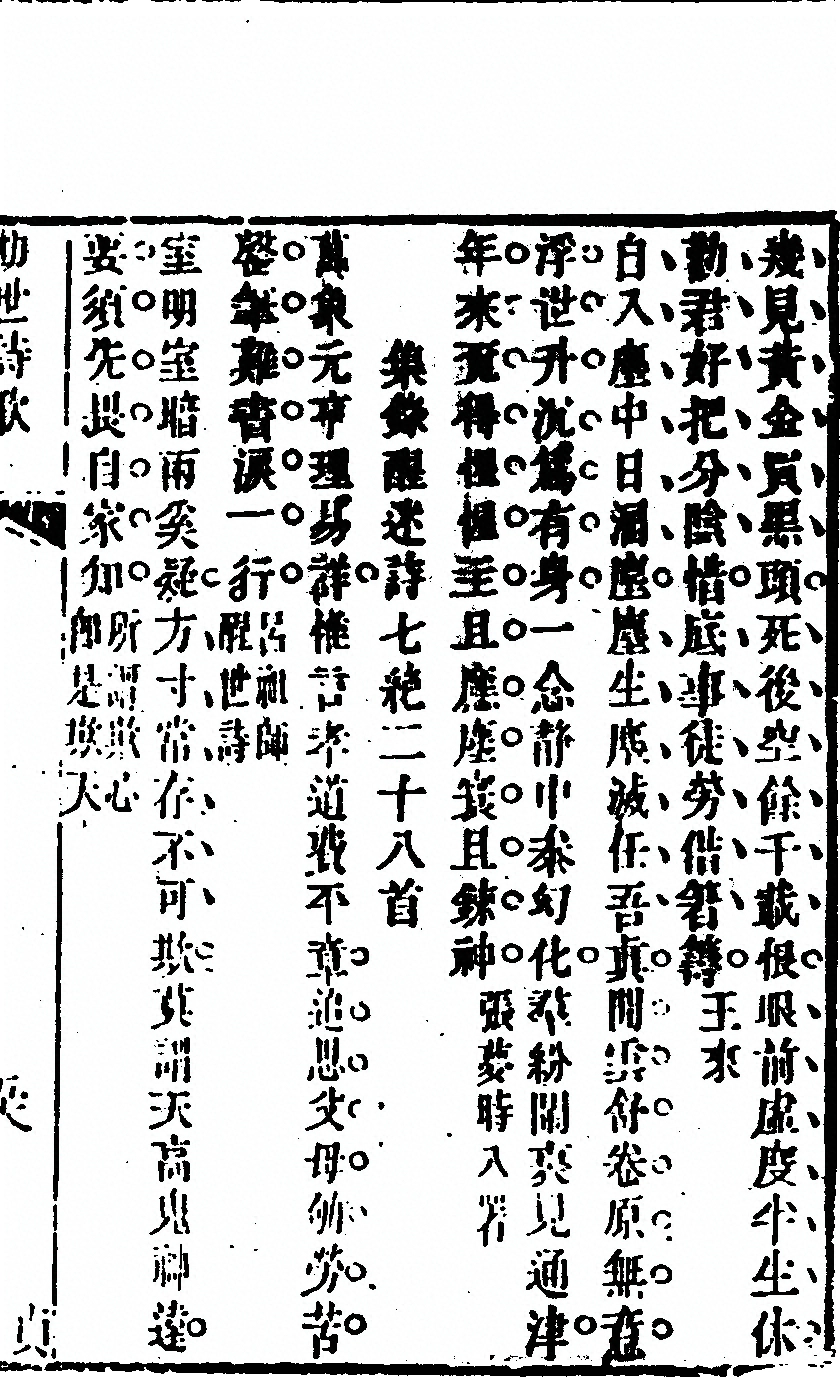 幾見黃金買黑頭死後空餘千載恨眼前虛度半生休
勸君好把分陰惜底事徒勞借箸籌 王來
自入塵中日涸塵塵生塵滅任吾真閒雲舒卷原無意
浮世升沉為有身一念静中泰幻化羣紛閙裏見通津
年來頂得惺惺至且塵塵寰且鍊神 張夢時入署
集錄醒迷詩七絕二十八首
萬象元亨理易詳惟言孝道戰不章追思父母劬勞苦
罄難書淚一行 呂祖師醒世詩
室明室暗兩奚疑方寸常存不可欺莫謂天高鬼神遠
要須先畏自家知 所謂欺心即是欺天
勸世詩歌
貞